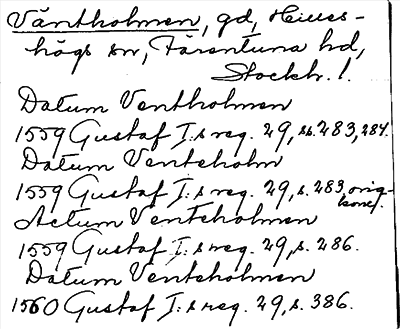 Väntholmen, gd, Hilles-
högs sn, Färentuna hd,
Stockh. l.
Datum Ventholmen
1559 Gustaf I:s reg. 29, ss. 283, 284.
Datum Venteholm
1559 Gustaf I:s reg. 29, s. 283, orig-
konc.
Actum Venteholmen
1559 Gustaf I:s reg. 29, s. 286.
Datum Venteholmen
1560 Gustaf I:s reg. 29, s. 386.